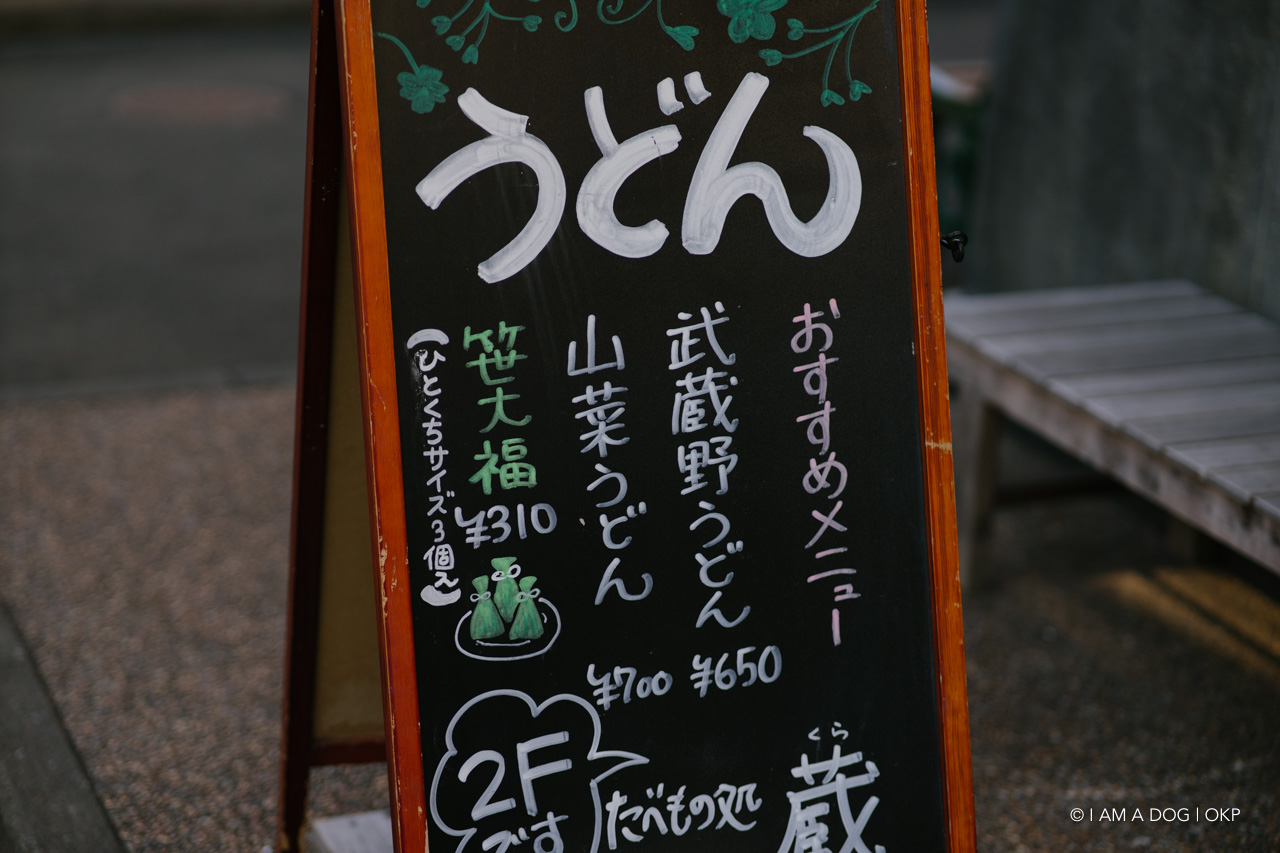 うどん
おすすめメニュー
武蔵野うどん
¥650
山菜うどん
¥700
笹大福
¥310
(ひとくちサイズ3個入)
くら
蔵
たべもの処
2F
です
© I AM A DOG | OKP